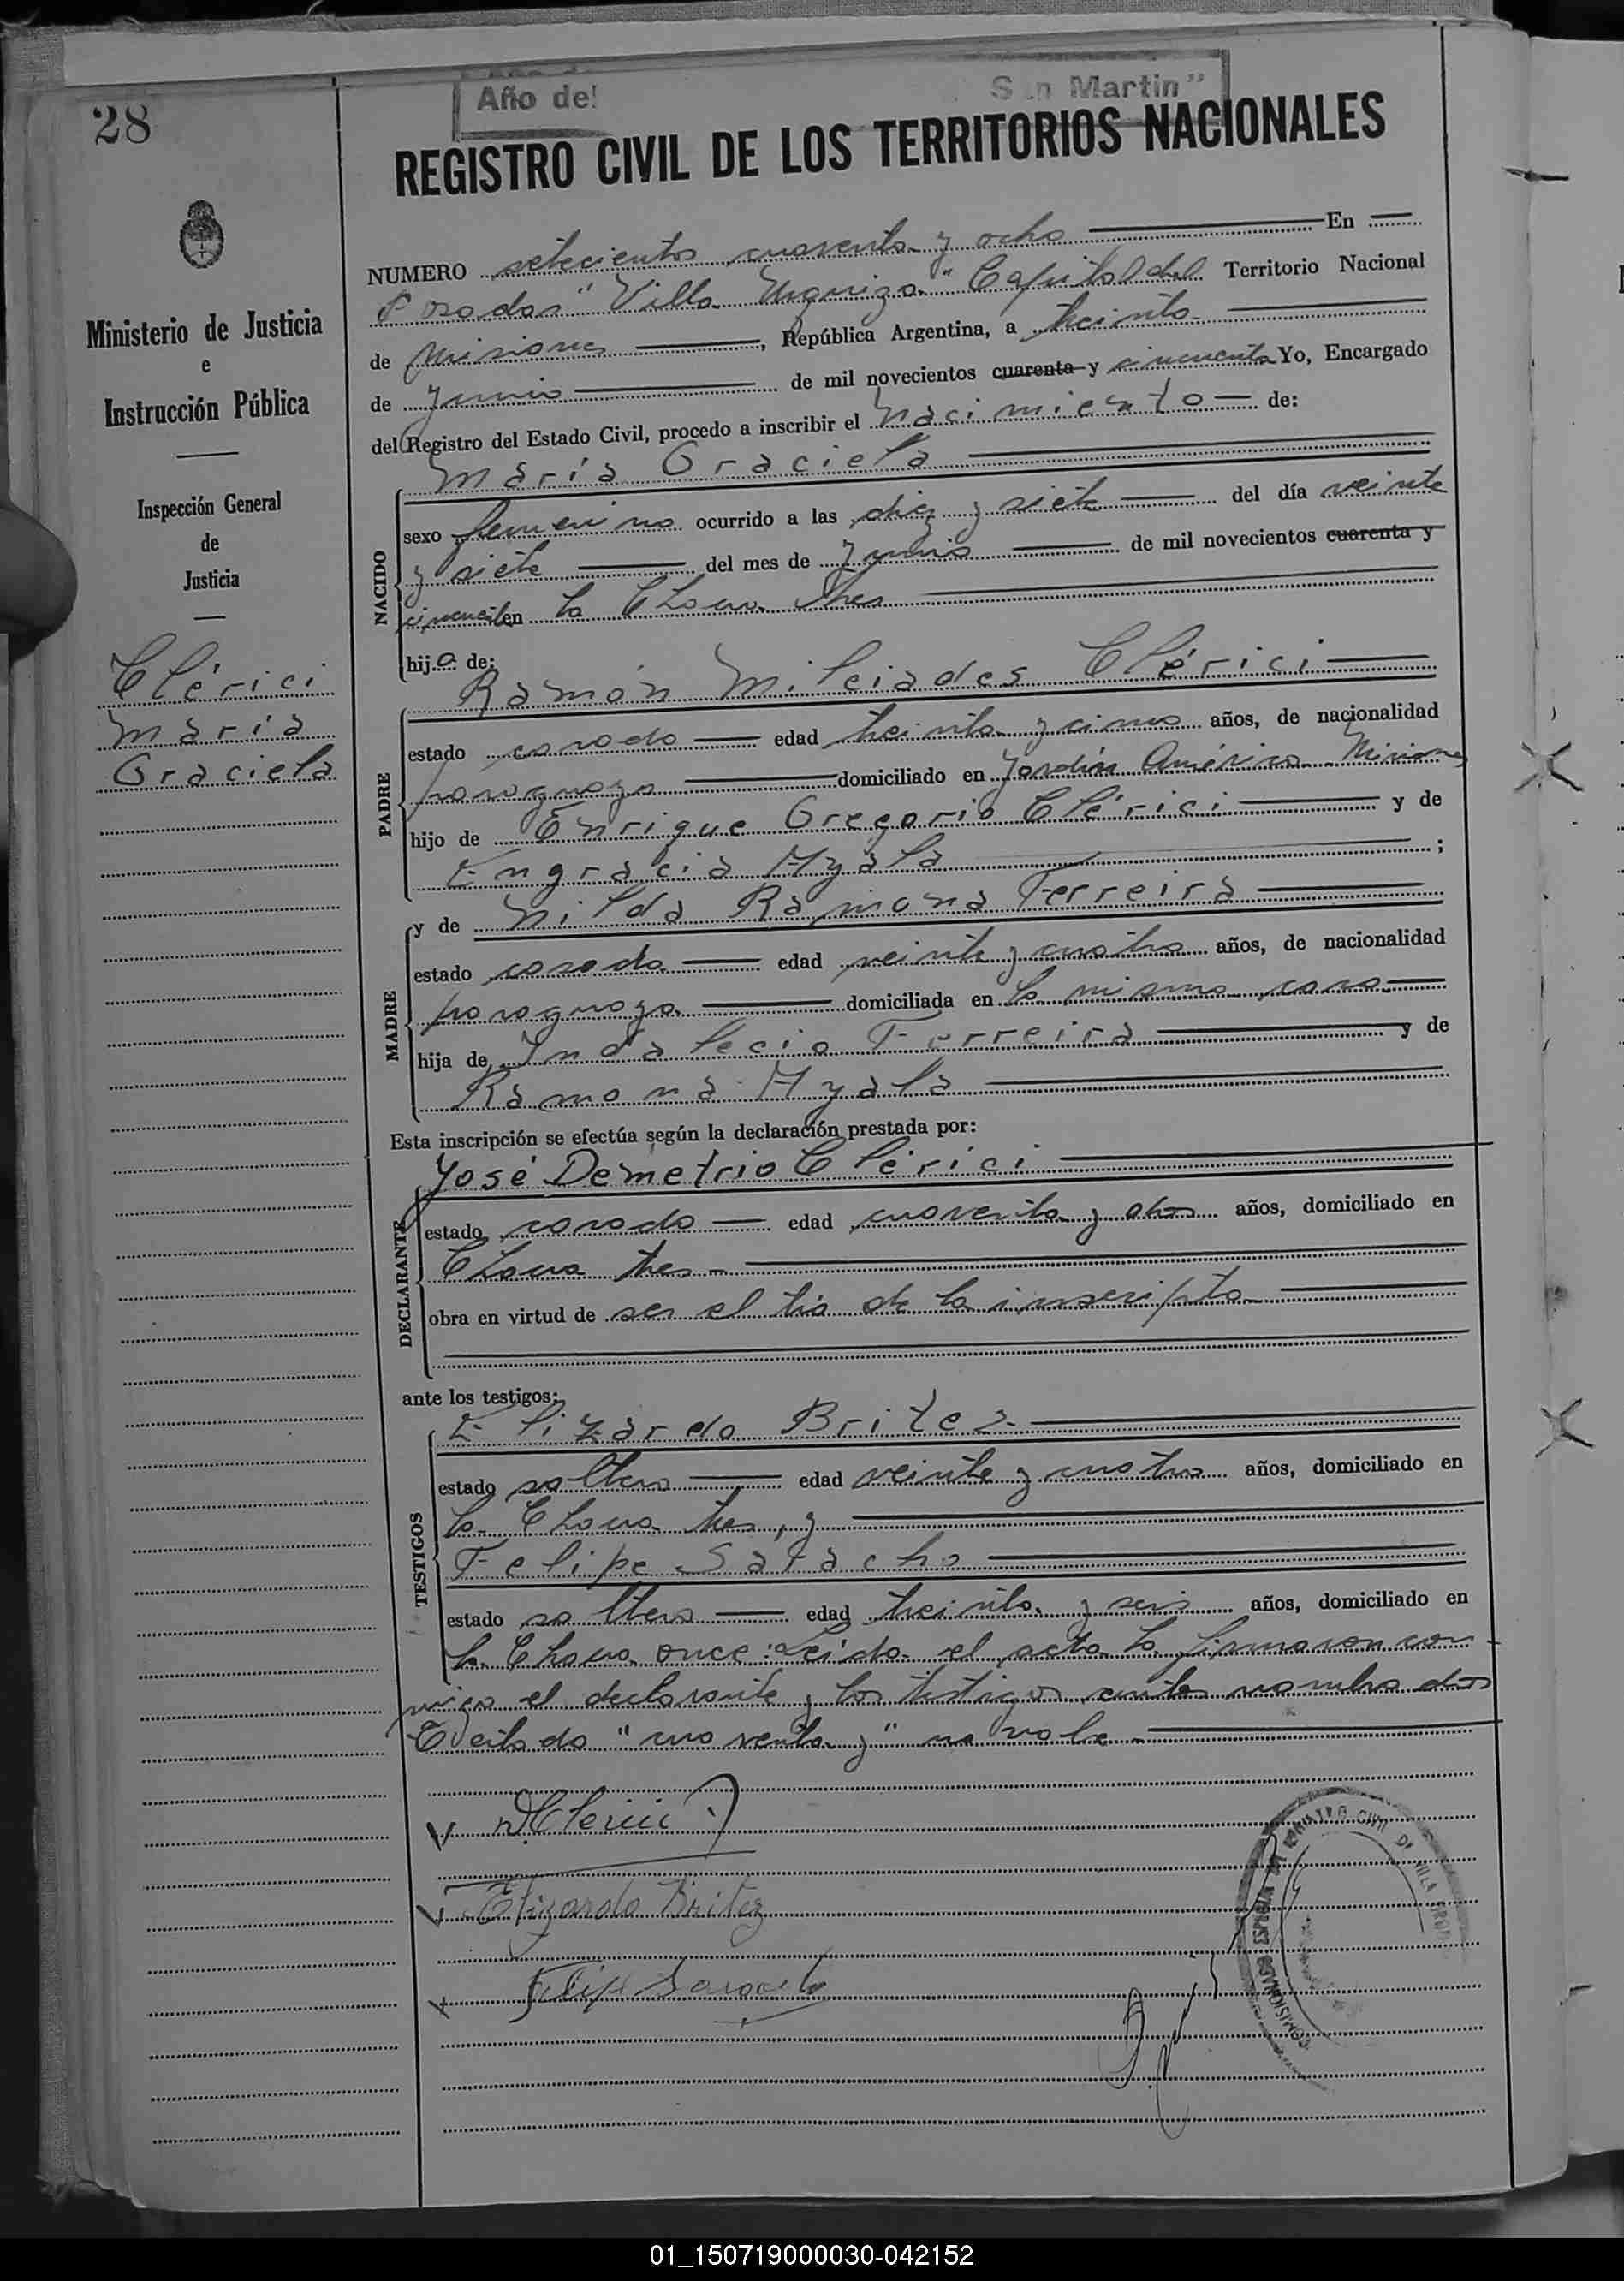 28
Año del
San Martin"
REGISTRO CIVIL DE LOS TERRITORIOS NACIONALES
Ministerio de Justicia
e
Instrucción Pública
Inspección General
de
Justicia
Clérici
María
Graciela
NUMERO setecientos cuarenta y ocho En
Posadas "Villa Urquiza" Capital del Territorio Nacional
de Misiones, República Argentina, a treinta
de Junio de mil novecientos cuarenta y cincuenta Yo, Encargado
del Registro del Estado Civil, procedo a inscribir el Nacimiento de:
NACIDO
María Graciela
sexo femenino ocurrido a las diez y siete del día veinte
y siete del mes de Junio de mil novecientos cuarenta y
en la Chacra tres
hija de:
PADRE
Ramón Milciades Clérici
estado casado edad treinta y cinco años, de nacionalidad
paraguaya domiciliado en Jardín América Misiones
hijo de Enrique Gregorio Clérici y de
Engracia Ayala ;
MADRE
y de Nilda Ramona Ferreira
estado casada edad veinte y cuatro años, de nacionalidad
paraguaya domiciliada en la misma casa
hija de Indalecio Ferreira y de
Ramona Ayala
Esta inscripción se efectúa según la declaración prestada por:
DECLARANTE
José Demetrio Clérici
estado casado edad cuarenta y años, domiciliado en
Chacra tres
obra en virtud de ser el tío de la inscripta
ante los testigos:
TESTIGOS
Elizardo Britez
estado soltero edad veinte y cuatro años, domiciliado en
la Chacra tres, y
Felipe Saracho
estado soltero edad treinta y seis años, domiciliado en
la Chacra once: Leida el acta la firmaron con
migo el declarante y los testigos antes nombrados
Testado "cuarenta y" no vale
Clerici
Elizardo Britez
Felipe Saracho
01_150719000030-042152